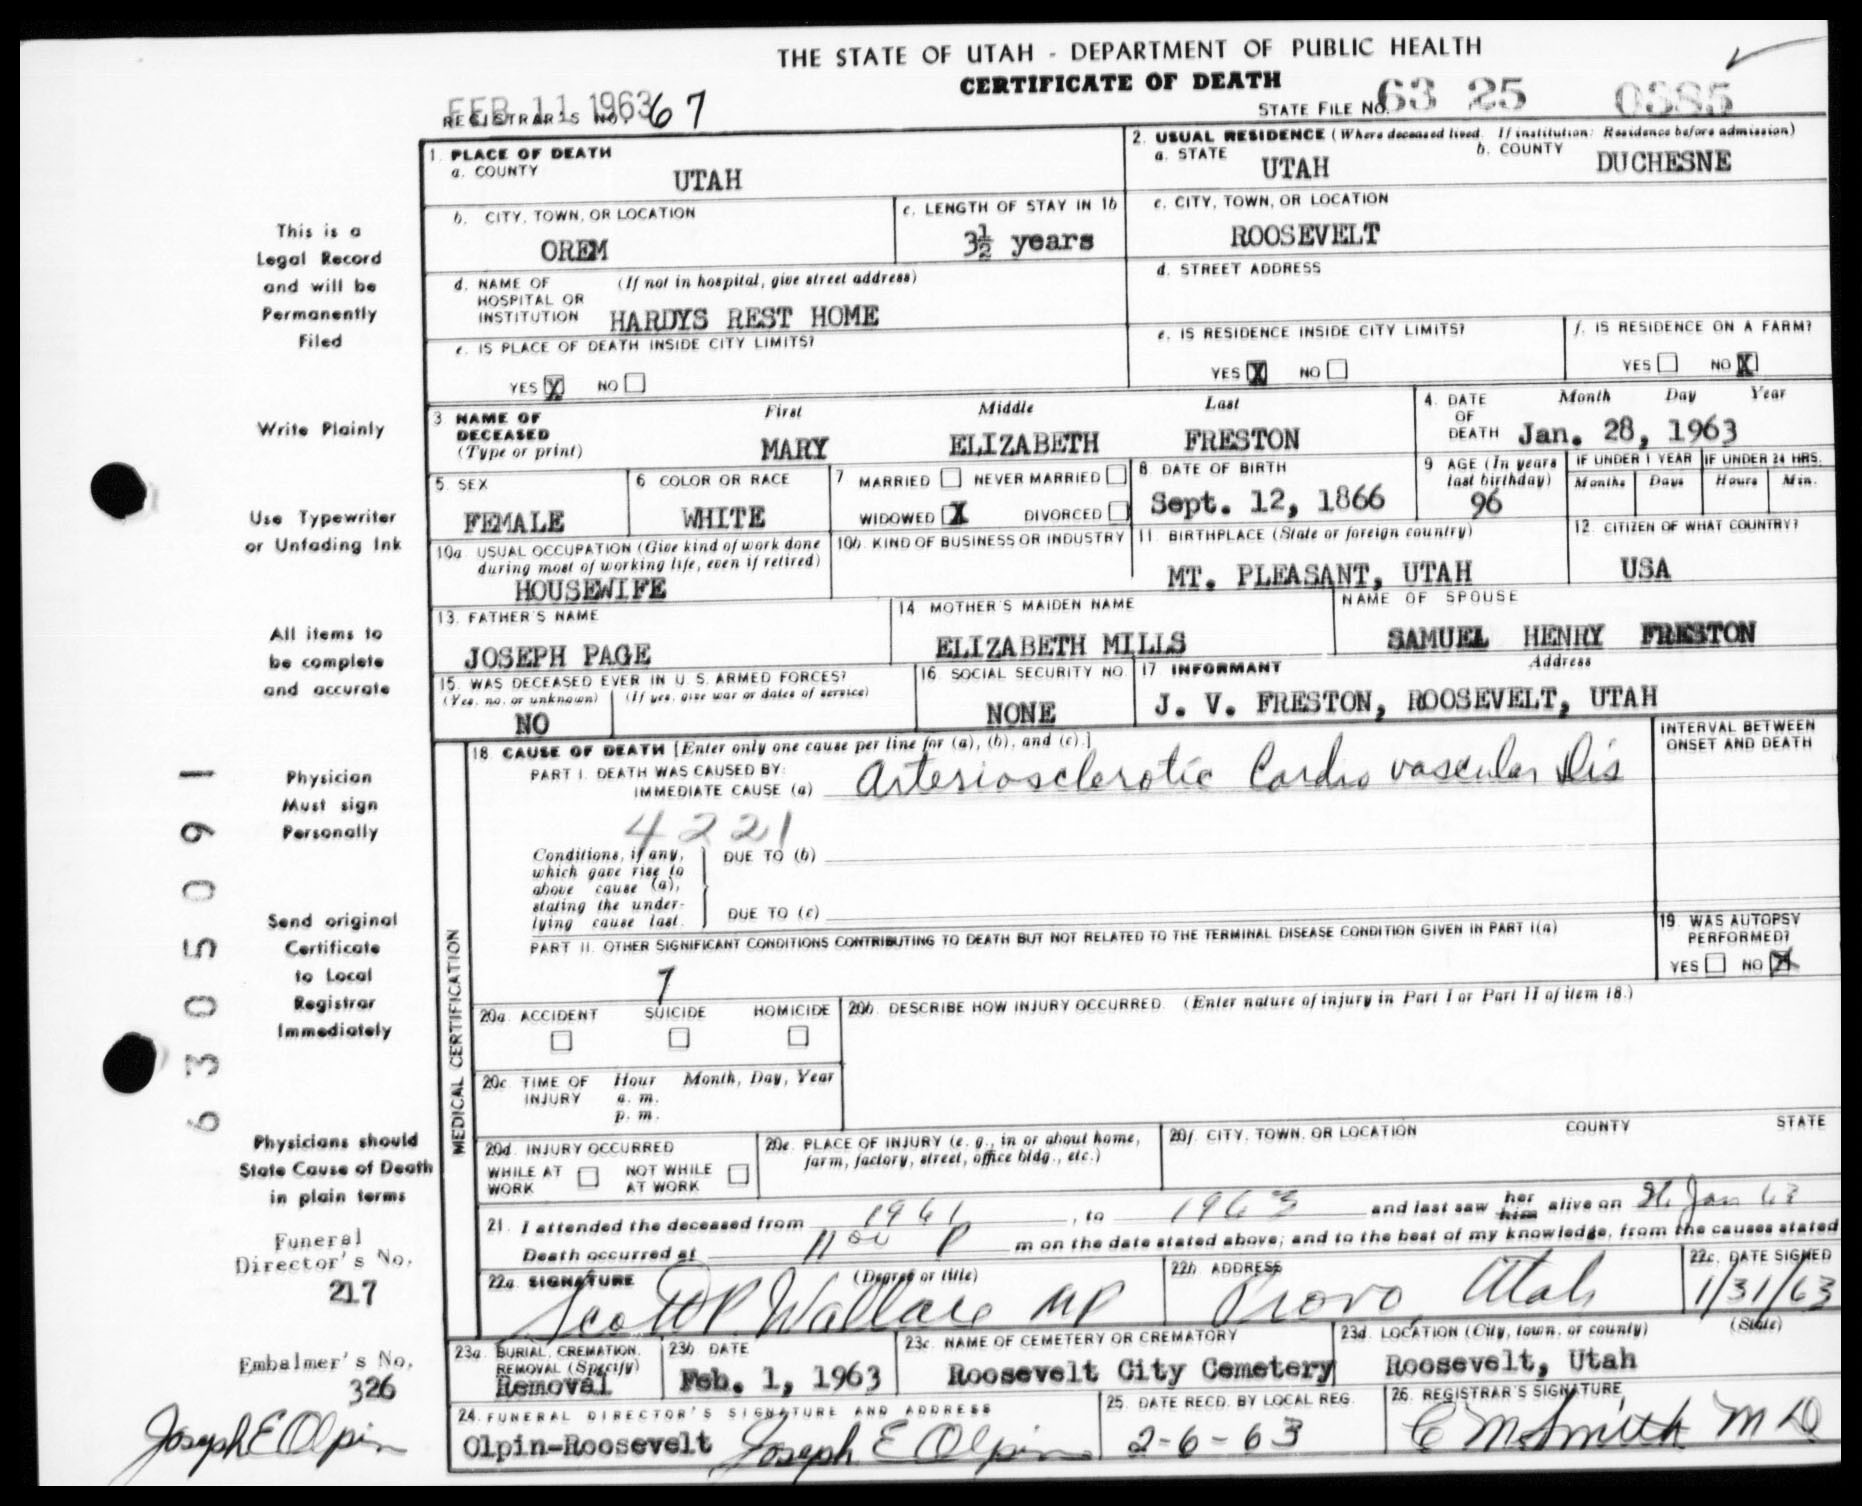 THE STATE OF UTAH - DEPARTMENT OF PUBLIC HEALTH
CERTIFICATE OF DEATH
FEB 11 1963
REGISTRAR'S NO. 67
STATE FILE NO. 63 25 0385
This is a
Legal Record
and will be
Permanently
Filed
Write Plainly
Use Typewriter
or Unfading Ink
All items to
be complete
and accurate
Physician
Must sign
Personally
Send original
Certificate
to Local
Registrar
Immediately
Physicians should
State Cause of Death
in plain terms
Funeral
Director's No.
217
Embalmer's No.
326
Joseph E Olpin
6305091
1. PLACE OF DEATH
a. COUNTY
UTAH
b. CITY, TOWN, OR LOCATION
OREM
c. LENGTH OF STAY IN 1b
3½ years
d. NAME OF HOSPITAL OR INSTITUTION (If not in hospital, give street address)
HARDYS REST HOME
e. IS PLACE OF DEATH INSIDE CITY LIMITS?
YES X NO
2. USUAL RESIDENCE (Where deceased lived. If institution: Residence before admission)
a. STATE
UTAH
b. COUNTY
DUCHESNE
c. CITY, TOWN, OR LOCATION
ROOSEVELT
d. STREET ADDRESS
e. IS RESIDENCE INSIDE CITY LIMITS?
YES X NO
f. IS RESIDENCE ON A FARM?
YES NO X
3 NAME OF DECEASED (Type or print)
First Middle Last
MARY ELIZABETH FRESTON
4. DATE OF DEATH
Month Day Year
Jan. 28, 1963
5. SEX
FEMALE
6 COLOR OR RACE
WHITE
7 MARRIED NEVER MARRIED
WIDOWED X DIVORCED
8. DATE OF BIRTH
Sept. 12, 1866
9 AGE (In years last birthday)
96
IF UNDER 1 YEAR
Months Days
IF UNDER 24 HRS.
Hours Min.
10a. USUAL OCCUPATION (Give kind of work done during most of working life, even if retired)
HOUSEWIFE
10b. KIND OF BUSINESS OR INDUSTRY
11. BIRTHPLACE (State or foreign country)
MT. PLEASANT, UTAH
12. CITIZEN OF WHAT COUNTRY?
USA
13. FATHER'S NAME
JOSEPH PAGE
14 MOTHER'S MAIDEN NAME
ELIZABETH MILLS
NAME OF SPOUSE
SAMUEL HENRY FRESTON
15. WAS DECEASED EVER IN U. S. ARMED FORCES?
(Yes, no, or unknown) (If yes, give war or dates of service)
NO
16. SOCIAL SECURITY NO.
NONE
17 INFORMANT Address
J. V. FRESTON, ROOSEVELT, UTAH
MEDICAL CERTIFICATION
18. CAUSE OF DEATH [Enter only one cause per line for (a), (b), and (c).]
INTERVAL BETWEEN ONSET AND DEATH
PART I. DEATH WAS CAUSED BY:
IMMEDIATE CAUSE (a) Arteriosclerotic Cardio vascular Dis
4221
Conditions, if any, which gave rise to above cause (a), stating the underlying cause last.
DUE TO (b)
DUE TO (c)
PART II. OTHER SIGNIFICANT CONDITIONS CONTRIBUTING TO DEATH BUT NOT RELATED TO THE TERMINAL DISEASE CONDITION GIVEN IN PART I(a)
7
19. WAS AUTOPSY PERFORMED?
YES NO X
20a. ACCIDENT SUICIDE HOMICIDE
20b. DESCRIBE HOW INJURY OCCURRED. (Enter nature of injury in Part I or Part II of item 18.)
20c. TIME OF INJURY Hour Month, Day, Year
a. m.
p. m.
20d. INJURY OCCURRED
WHILE AT WORK NOT WHILE AT WORK
20e. PLACE OF INJURY (e. g., in or about home, farm, factory, street, office bldg., etc.)
20f. CITY, TOWN, OR LOCATION COUNTY STATE
21. I attended the deceased from 1961, to 1963 and last saw her him alive on 26 Jan 63
Death occurred at 11 00 P m on the date stated above; and to the best of my knowledge, from the causes stated
22a. SIGNATURE (Degree or title)
Scott P. Wallace MD
22b. ADDRESS
Provo, Utah
22c. DATE SIGNED
1/31/63
23a. BURIAL, CREMATION, REMOVAL (Specify)
Removal
23b. DATE
Feb. 1, 1963
23c. NAME OF CEMETERY OR CREMATORY
Roosevelt City Cemetery
23d. LOCATION (City, town, or county) (State)
Roosevelt, Utah
24. FUNERAL DIRECTOR'S SIGNATURE AND ADDRESS
Olpin-Roosevelt Joseph E Olpin
25. DATE RECD. BY LOCAL REG.
2-6-63
26. REGISTRAR'S SIGNATURE
C M Smith M D